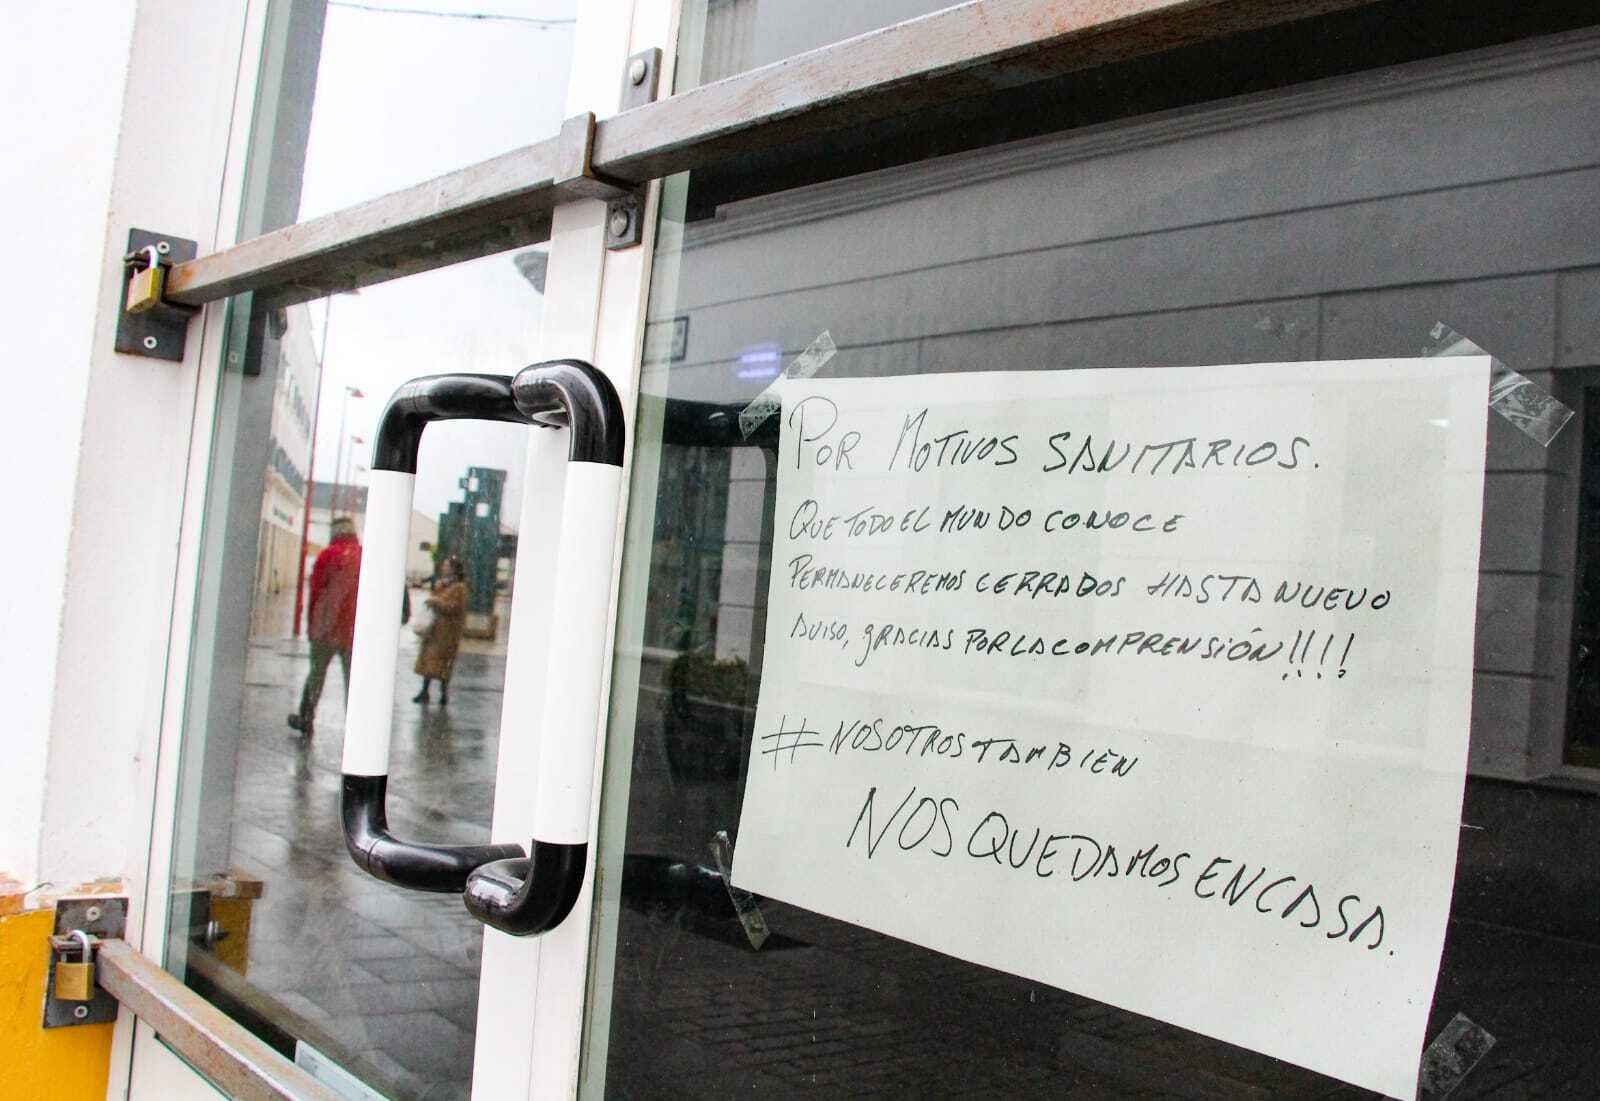 POR MOTIVOS SANITARIOS.
QUE TODO EL MUNDO CONOCE
PERMANECEREMOS CERRADOS HASTA NUEVO
AVISO, GRACIAS POR LA COMPRENSIÓN!!!!
#NOSOTROSTAMBIÉN
NOS QUEDAMOS EN CASA.